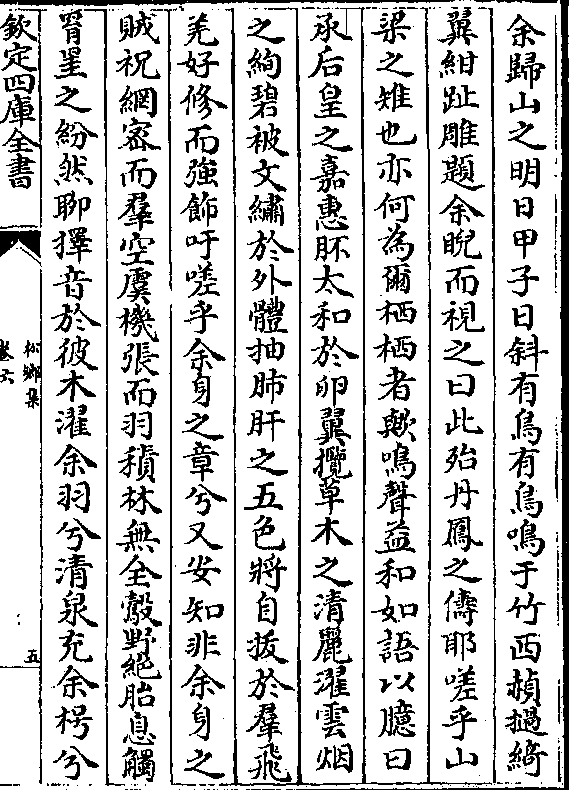 余歸山之明日甲子日斜有鳥有鳥鳴于竹西頳撾綺
翼紺趾雕題余睨而視之曰此殆丹鳳之儔耶嗟乎山
梁之雉也亦何為爾栖栖者歟鳴聲益和如語以臆曰
承后皇之嘉惠胚太和於卵翼攬草木之清麗濯雲烟
之絢碧被文繡於外體抽肺肝之五色將自拔於羣飛
羌好修而強飾吁嗟乎余身之章兮又安知非余身之
賊祝網密而羣空虞機張而羽積林無全鷇野絕胎息觸
罥罣之紛然聊擇音於彼木濯余羽兮清泉充余枵兮
欽定四庫全書
松鄉集
卷六
五